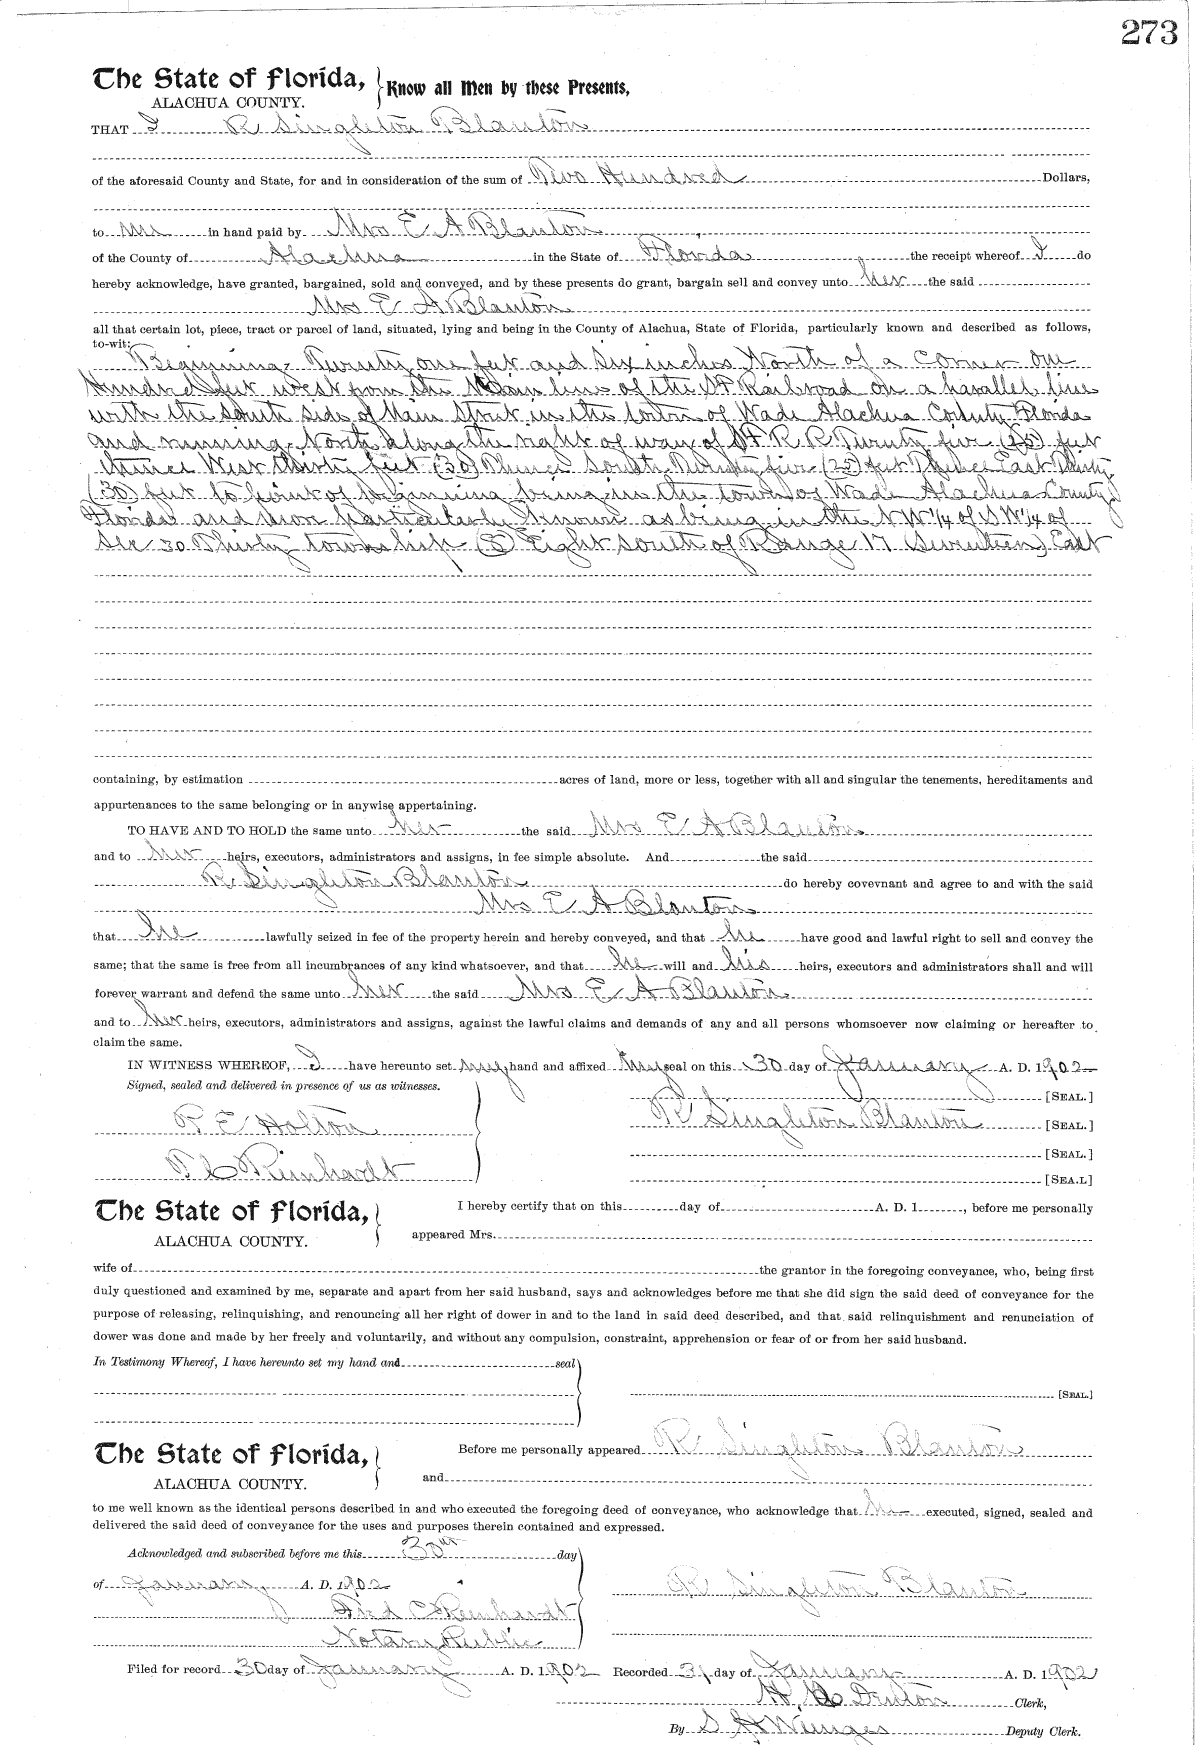 273
The State of Florida,
ALACHUA COUNTY.
Know all Men by these Presents,
THAT I R Singleton Blanton
of the aforesaid County and State, for and in consideration of the sum of Two Hundred Dollars,
to me in hand paid by Mrs E A Blanton
of the County of Alachua in the State of Florida the receipt whereof I do
hereby acknowledge, have granted, bargained, sold and conveyed, and by these presents do grant, bargain sell and convey unto her the said
Mrs E A Blanton
all that certain lot, piece, tract or parcel of land, situated, lying and being in the County of Alachua, State of Florida, particularly known and described as follows,
to-wit:
Beginning Twenty one feet and Six inches North of a Corner One
Hundred feet west from the Main line of the S F Railroad on a parallel line
with the South side of Main Street in the town of Wade Alachua County Florida
and running North along the right of way of S F R R Twenty five (25) feet
thence West thirty feet (30) Thence South Twenty five (25) feet Thence East Thirty
(30) feet to point of beginning being in the town of Wade Alachua County
Florida and more particularly Known as being in the NW 1/4 of SW 1/4 of
Sec 30 Thirty township (8) Eight South of Range 17 (Seventeen) East
containing, by estimation acres of land, more or less, together with all and singular the tenements, hereditaments and
appurtenances to the same belonging or in anywise appertaining.
TO HAVE AND TO HOLD the same unto her the said Mrs E A Blanton
and to her heirs, executors, administrators and assigns, in fee simple absolute. And the said
R Singleton Blanton do hereby covevnant and agree to and with the said
Mrs E A Blanton
that he lawfully seized in fee of the property herein and hereby conveyed, and that he have good and lawful right to sell and convey the
same; that the same is free from all incumbrances of any kind whatsoever, and that he will and his heirs, executors and administrators shall and will
forever warrant and defend the same unto her the said Mrs E A Blanton
and to her heirs, executors, administrators and assigns, against the lawful claims and demands of any and all persons whomsoever now claiming or hereafter to
claim the same.
IN WITNESS WHEREOF, I have hereunto set my hand and affixed my seal on this 30 day of January A. D. 1902
Signed, sealed and delivered in presence of us as witnesses.
[SEAL.]
R E Holton
R Singleton Blanton [SEAL.]
[SEAL.]
F C Rienhardt
[SEA.L]
The State of Florida,
ALACHUA COUNTY.
I hereby certify that on this day of A. D. 1 , before me personally
appeared Mrs.
wife of the grantor in the foregoing conveyance, who, being first
duly questioned and examined by me, separate and apart from her said husband, says and acknowledges before me that she did sign the said deed of conveyance for the
purpose of releasing, relinquishing, and renouncing all her right of dower in and to the land in said deed described, and that said relinquishment and renunciation of
dower was done and made by her freely and voluntarily, and without any compulsion, constraint, apprehension or fear of or from her said husband.
In Testimony Whereof, I have hereunto set my hand and seal
[SEAL.]
The State of Florida,
ALACHUA COUNTY.
Before me personally appeared R Singleton Blanton
and
to me well known as the identical persons described in and who executed the foregoing deed of conveyance, who acknowledge that he executed, signed, sealed and
delivered the said deed of conveyance for the uses and purposes therein contained and expressed.
Acknowledged and subscribed before me this 30th day
of January A. D. 1902
R Singleton Blanton
Fred C Rienhardt
Notary Public
Filed for record 30 day of January A. D. 1902 Recorded 31 day of January A. D. 1902
Clerk,
By S H Wienges Deputy Clerk.